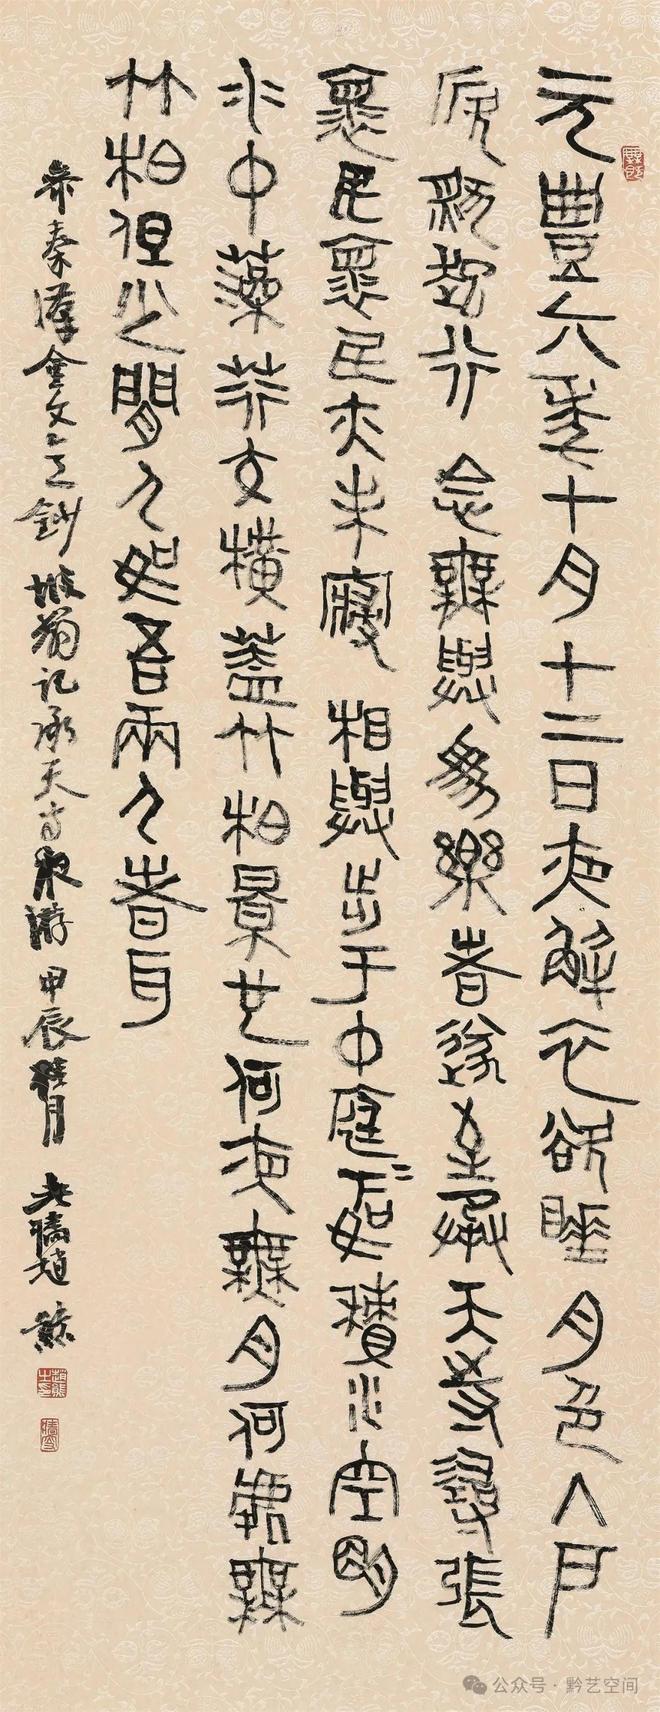 元豐六年十月十二日夜解衣欲睡月色入戶
欣然起行念無與為樂者遂至承天寺尋張
懷民懷民亦未寢相與步于中庭=下如積水空明
水中藻荇交橫蓋竹柏景也何夜無月何處無
竹柏但少閒人如吾兩人者耳
參秦漢金文意鈔坡翁記承天寺夜游甲辰臘月趙熊
公众号·黔艺空间